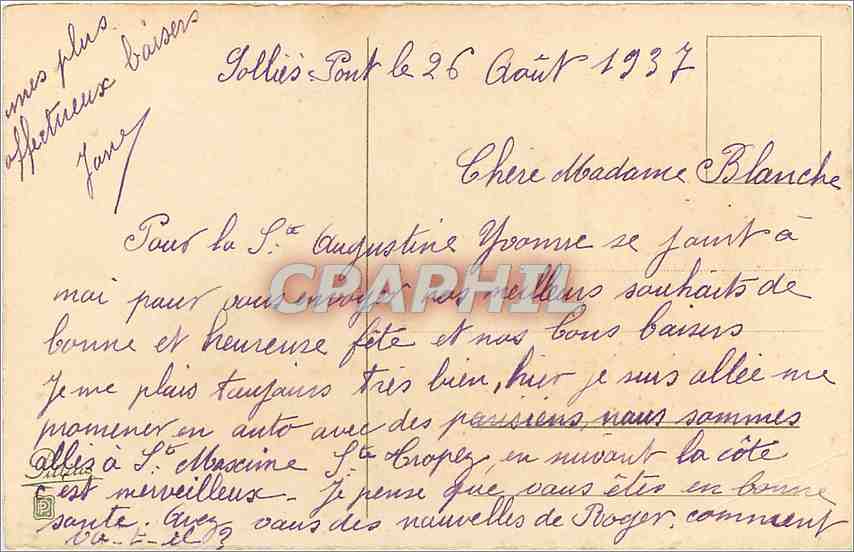 Solliès-Pont le 26 Août 1937
Chère Madame Blanche
Pour la Ste Augustine Yvonne se joint à
moi pour vous envoyer nos meilleurs souhaits de
bonne et heureuse fête et nos bons baisers
Je me plais toujours très bien, hier je suis allée me
promener en auto avec des parisiens, nous sommes
allés à Ste Maxime St Tropez en suivant la côte
c'est merveilleux - Je pense que vous êtes en bonne
santé. Avez vous des nouvelles de Roger, comment
va-t-il ?
mes plus
affectueux baisers
Jane
CPAPHIL